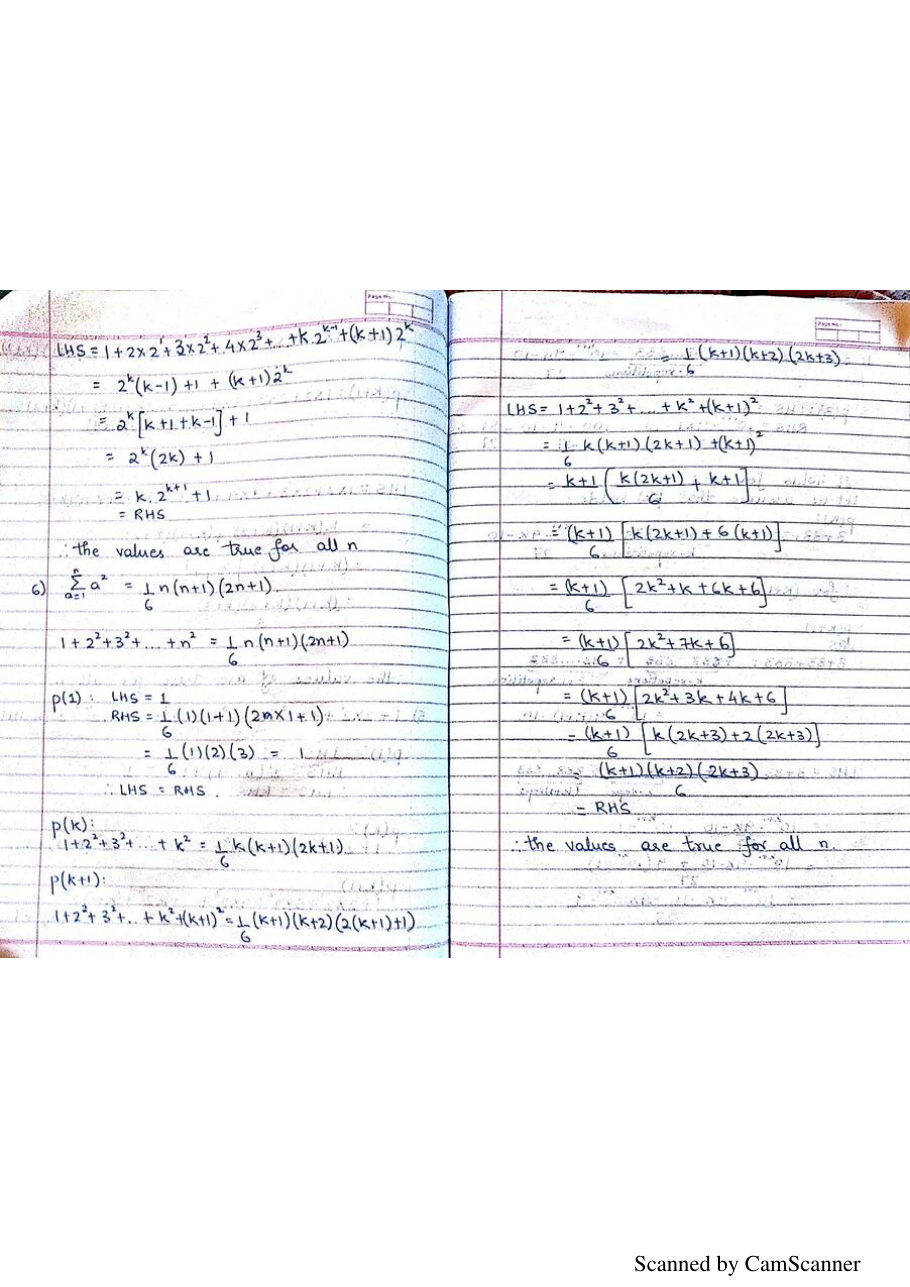 Page No.:
LHS = 1+2×2¹+3×2²+4×2³+...+k.2ᵏ⁻¹+(k+1)2ᵏ
= 2ᵏ(k-1)+1 + (k+1)2ᵏ
= 2ᵏ[k+1+k-1]+1
= 2ᵏ(2k)+1
= k.2ᵏ⁺¹+1
= RHS
∴ the values are true for all n
6) ∑ⁿₐ₌₁ a² = 1/6 n(n+1)(2n+1)
1+2²+3²+...+n² = 1/6 n(n+1)(2n+1)
p(1): LHS = 1
RHS = 1/6 (1)(1+1)(2×1+1)
= 1/6 (1)(2)(3) = 1
∴ LHS = RHS.
p(k):
1+2²+3²+...+k² = 1/6 k(k+1)(2k+1)
p(k+1):
1+2²+3²+..+k²+(k+1)² = 1/6 (k+1)(k+2)(2(k+1)+1)
Page No.:
= 1/6 (k+1)(k+2)(2k+3)
LHS = 1+2²+3²+...+k²+(k+1)²
= 1/6 k(k+1)(2k+1)+(k+1)²
= k+1 [k(2k+1)/6 + k+1]
= (k+1)/6 [k(2k+1)+6(k+1)]
= (k+1)/6 [2k²+k+6k+6]
= (k+1)/6 [2k²+7k+6]
= (k+1)/6 [2k²+3k+4k+6]
= (k+1)/6 [k(2k+3)+2(2k+3)]
= (k+1)(k+2)(2k+3)/6
= RHS
∴ the values are true for all n.
Scanned by CamScanner